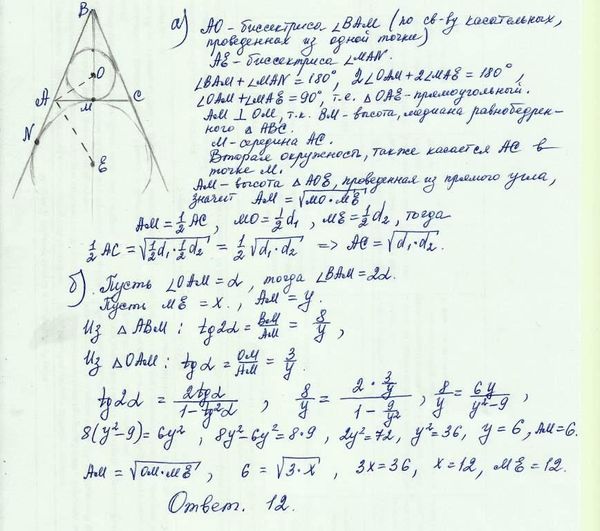 B
O
A
M
C
N
E
а) AO - биссектриса ∠BAM (по св-ву касательных,
проведенных из одной точки)
AE - биссектриса ∠MAN.
∠BAM + ∠MAN = 180°, 2∠OAM + 2∠MAE = 180°,
∠OAM + ∠MAE = 90°, т.е. △OAE - прямоугольной.
AM ⊥ OM, т.к. BM - высота, медиана равнобедрен-
ного △ABC.
M - середина AC.
Вторая окружность, также касается AC в
точке M.
AM - высота △AOE, проведенная из прямого угла,
значит AM = √(MO·ME)
AM = 1/2 AC, MO = 1/2 d₁, ME = 1/2 d₂, тогда
1/2 AC = √(1/2 d₁ · 1/2 d₂) = 1/2 √(d₁·d₂) => AC = √(d₁·d₂).
б) Пусть ∠OAM = α, тогда ∠BAM = 2α.
Пусть ME = x, AM = y.
Из △ABM: tg2α = BM/AM = 8/y,
Из △OAM: tgα = OM/AM = 3/y.
tg2α = 2tgα/(1-tg²α), 8/y = (2·3/y)/(1-9/y²), 8/y = 6y/(y²-9),
8(y²-9) = 6y², 8y²-6y² = 8·9, 2y² = 72, y² = 36, y = 6, AM = 6.
AM = √(OM·ME), 6 = √(3·x), 3x = 36, x = 12, ME = 12.
Ответ. 12.